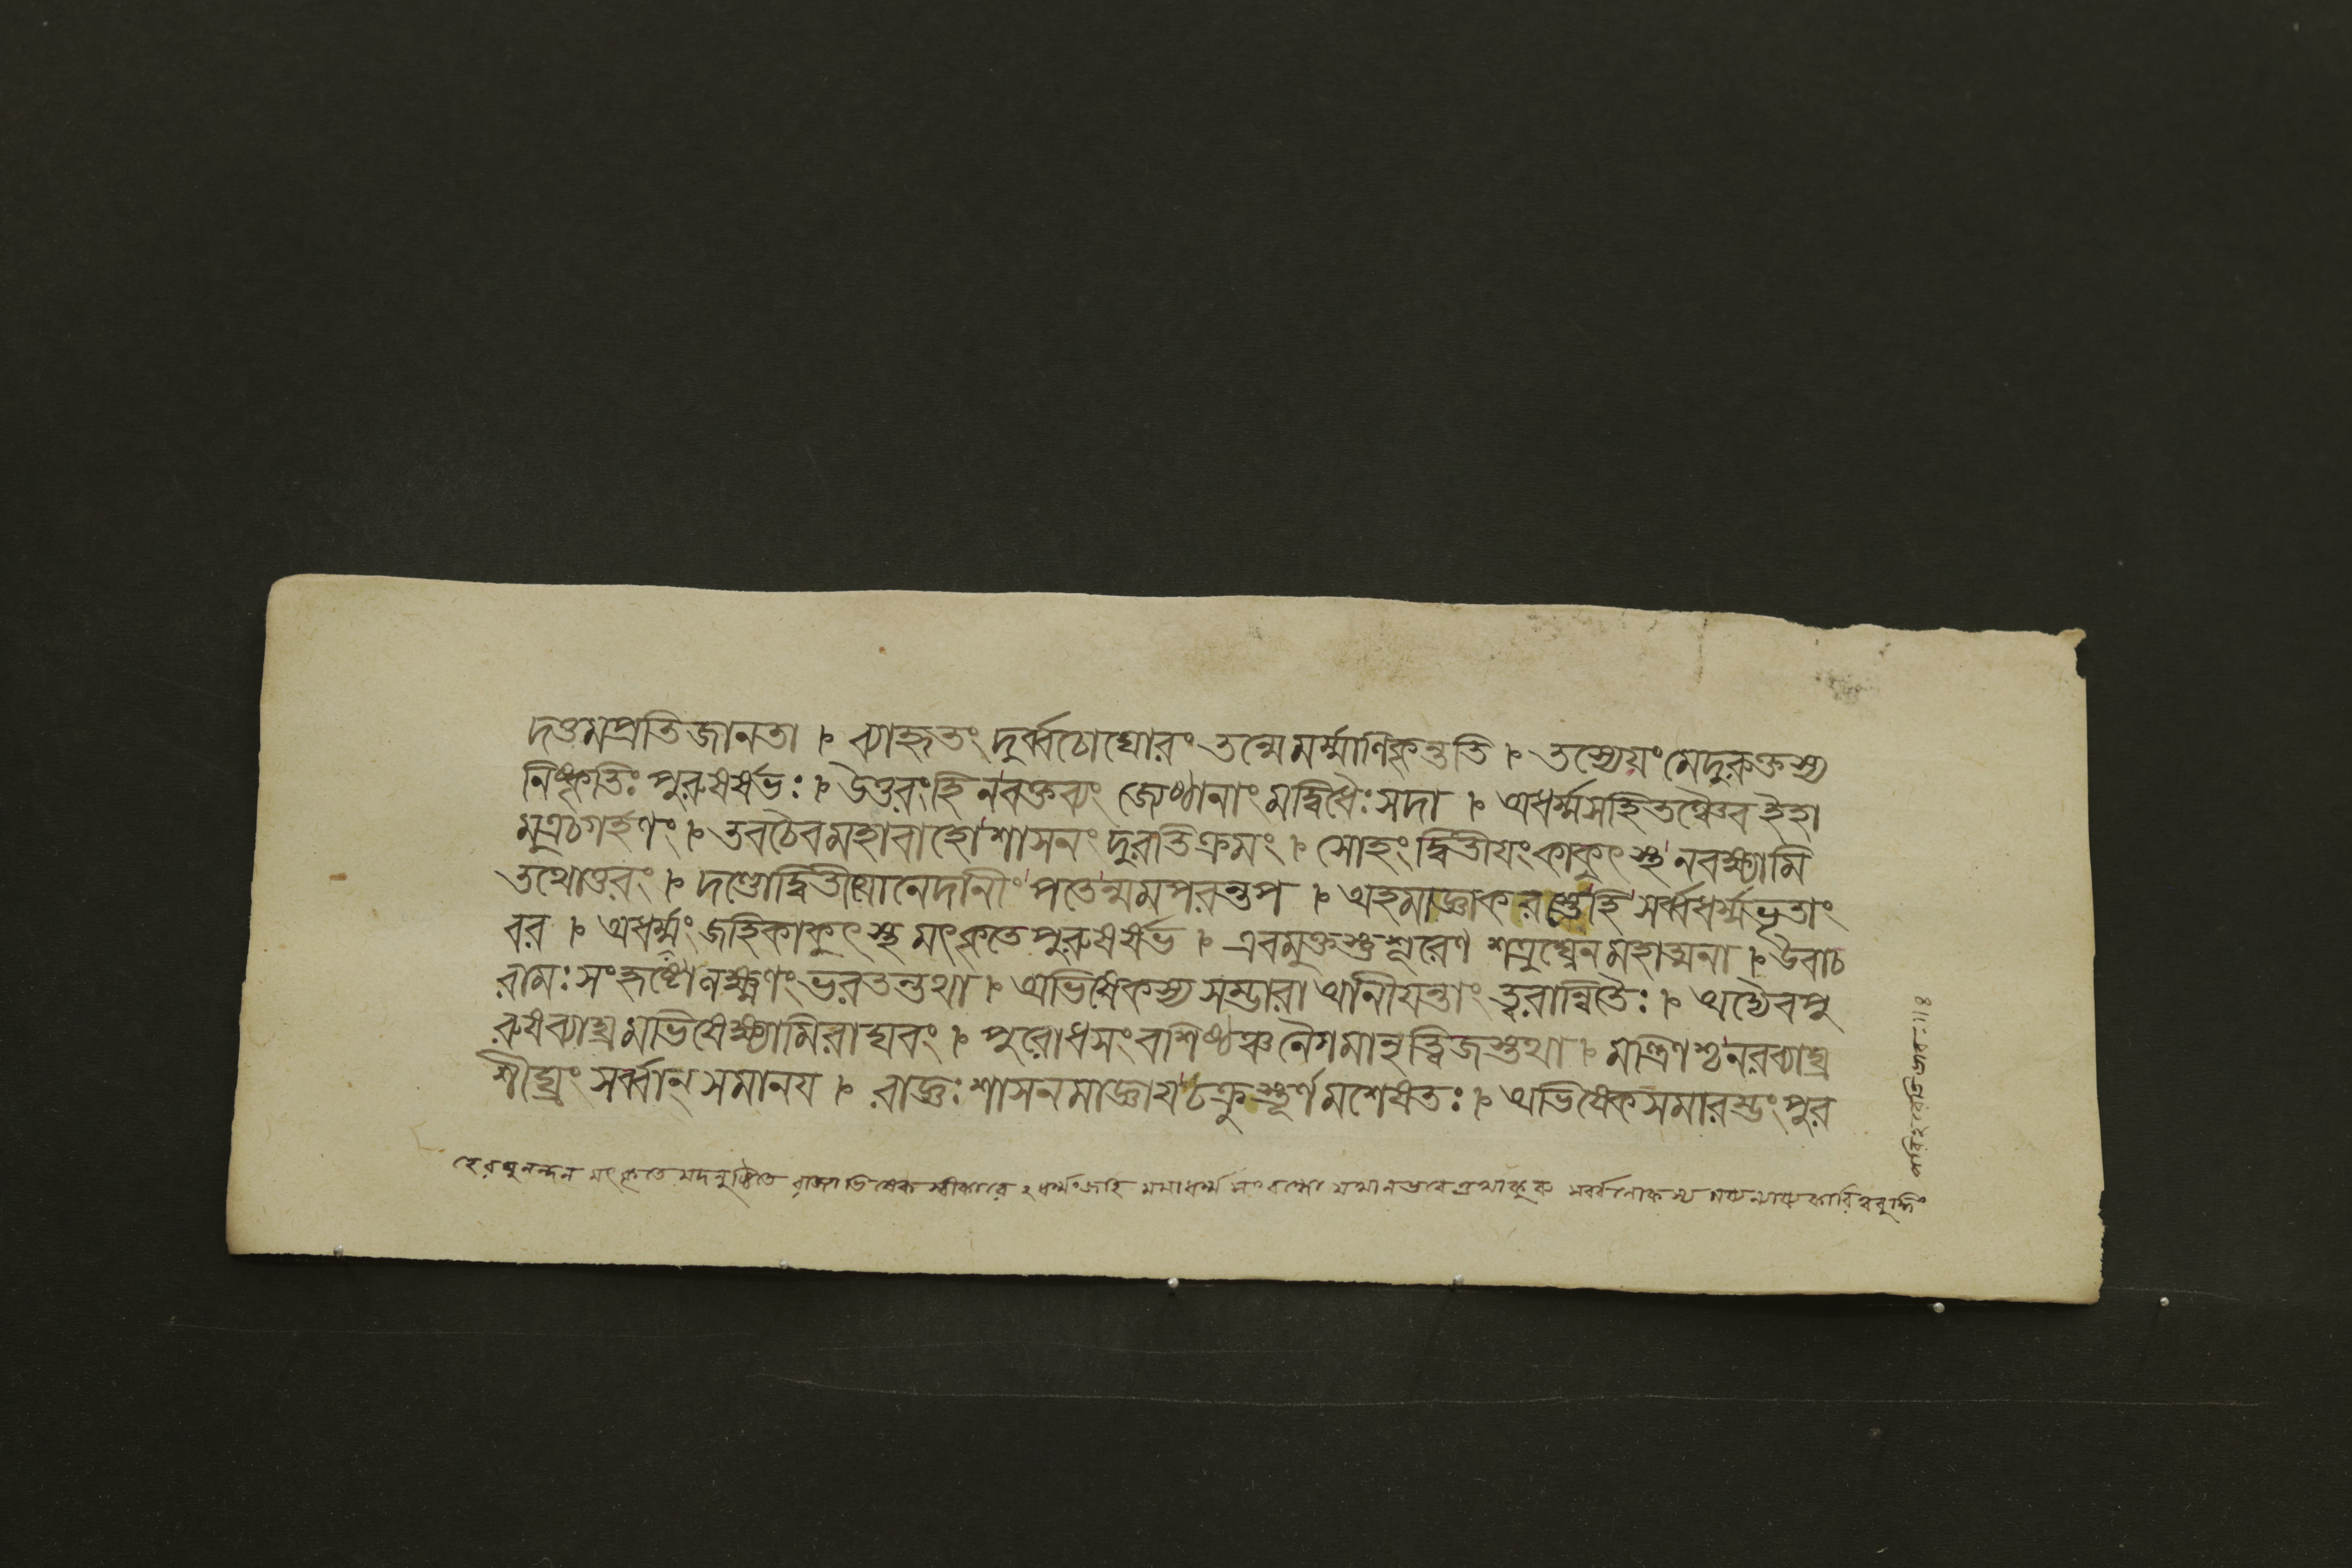 দত্তমপ্রতিজানতা । ব্যাহৃতং দুর্ব্বচোঘোরং তন্মেমর্ম্মাণিকৃন্ততি । তস্যেয়ংমেদুরুক্তস্য
নিষ্কৃতিঃ পুরুষর্ষভঃ । উত্তরংহি নবক্তব্যং জ্যেষ্ঠানাংমদ্বিধৈঃসদা । অধর্ম্মসহিতঞ্চৈব ইহা
মুত্রচগর্হণং । তবচৈবমহাবাহোশাসনং দুরতিক্রমং । সোহংদ্বিতীয়ংকাকুৎস্থনবক্ষ্যামি
তথোত্তরং । দণ্ডোদ্বিতীয়ানেদনীং পতেন্মমপরন্তপ । অহমাজ্ঞাকরস্তেহি সর্ব্বধর্ম্মভৃতাং
বর । অধর্ম্মং জহিকাকুৎস্থ মৎকৃতেপুরুষর্ষভ । এবমুক্তস্তুশূরেণ শত্রুঘ্নেনমহাত্মনা । উবাচ
রামঃ সংহৃষ্টোলক্ষ্মণং ভরতন্তথা । অভিষেকস্য সম্ভারা আনীয়ন্তাং ত্বরান্বিতৈঃ । অদ্যৈবপু
রুষব্যাঘ্রমভিষেক্ষ্যামিরাঘবং । পুরোধসংবশিষ্ঠঞ্চ নৈগমানৃত্বিজস্তথা । মন্ত্রিণশ্চনরব্যাঘ্র
শীঘ্রং সর্ব্বান্ সমানয় । রাজ্ঞঃ শাসনমাজ্ঞায়চক্রুস্তূর্ণমশেষতঃ । অভিষেকসমারম্ভংপুর
হেরঘুনন্দন মৎকৃতে মদনুষ্ঠিতে রাজ্যাভিষেক স্বীকারে ২ধর্ম্মংজহি মমাধর্ম্ম